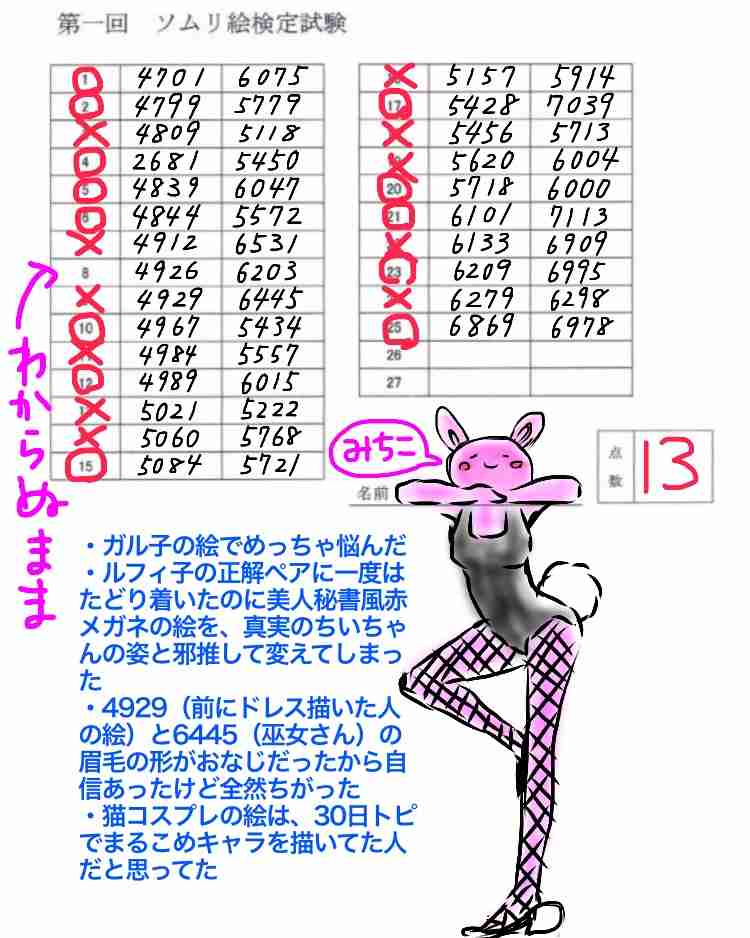 第一回 ソムリ絵検定試験
1 4701 6075
2 4799 5779
4809 5118
4 2681 5450
5 4839 6047
6 4844 5572
4912 6531
8 4926 6203
4929 6445
10 4967 5434
4984 5557
12 4989 6015
5021 5222
5060 5768
15 5084 5721
5157 5914
17 5428 7039
5456 5713
5620 6004
20 5718 6000
21 6101 7113
6133 6909
23 6209 6995
6279 6298
25 6869 6978
26
27
わからぬまま
みちこ
名前
点数 13
・ガル子の絵でめっちゃ悩んだ
・ルフィ子の正解ペアに一度は
たどり着いたのに美人秘書風赤
メガネの絵を、真実のちいちゃ
んの姿と邪推して変えてしまっ
た
・4929（前にドレス描いた人
の絵）と6445（巫女さん）の
眉毛の形がおなじだったから自
信あったけど全然ちがった
・猫コスプレの絵は、30日トピ
でまるこめキャラを描いてた人
だと思ってた